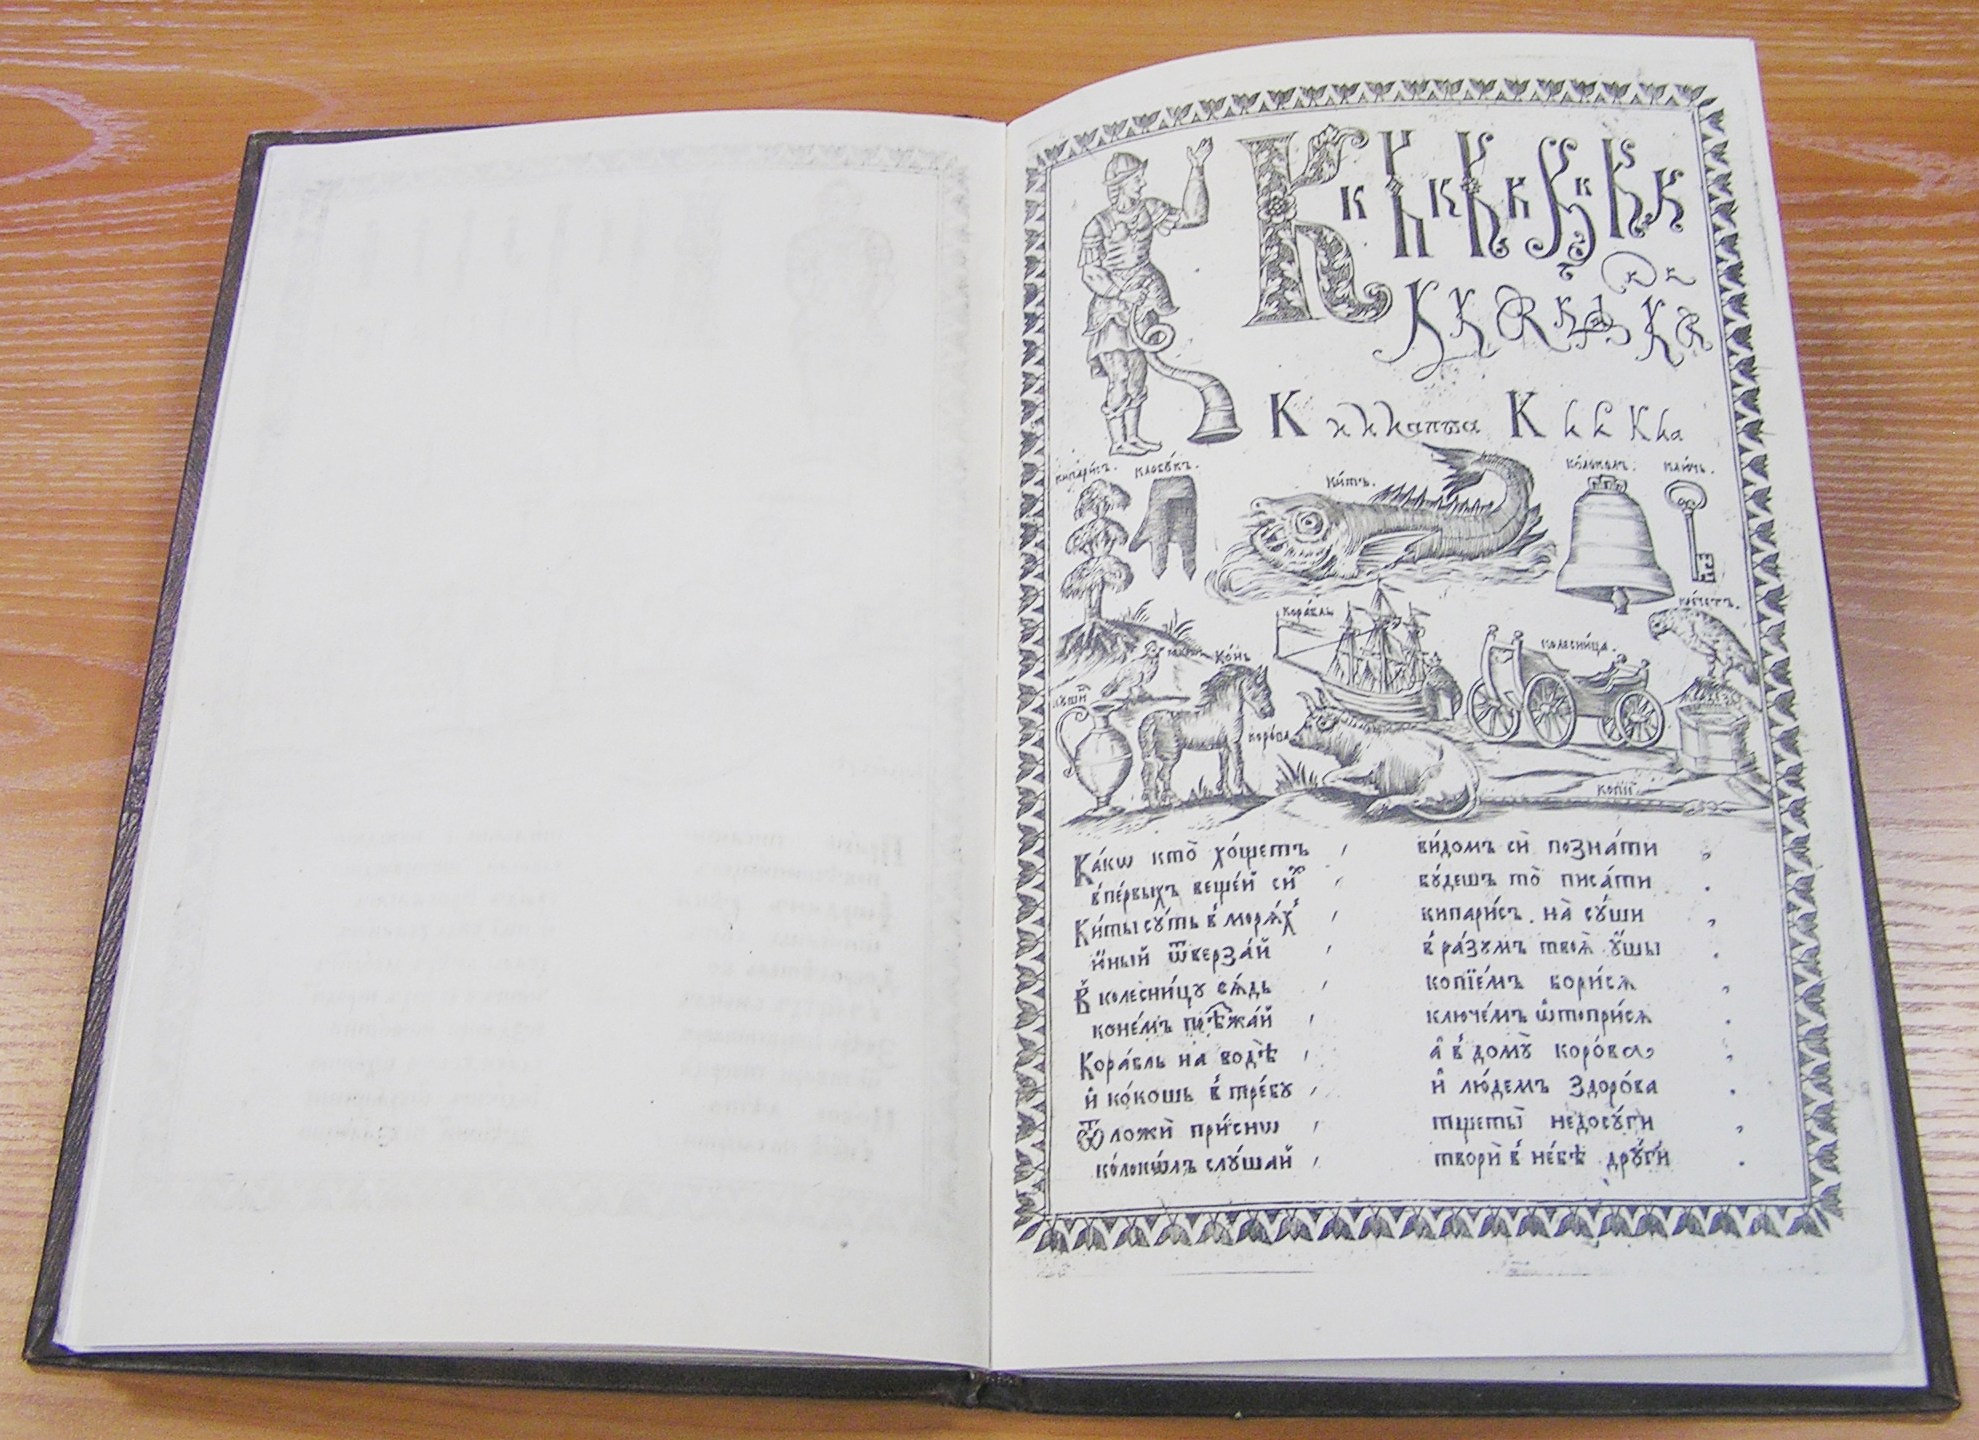 К к к к к к к к к к
к к
К к к к к к к
К к к к капта К к к К ка
кипари́съ. клобу́къ. ки́тъ. ко́локолъ. клю́чь.
кре́четъ.
кора́бль колесни́ца.
ко́нь
коро́ва
копїѐ.
Ка́кѡ кто̀ хо́щетъ , ви́домъ сѝ позна́ти ,
в̾пе́рвыхъ веще́й си́х , бу́дешъ то̀ писа́ти .
Ки́ты су́ть в̾ моря́х , кипари́съ на̀ су́ши ,
и҆́ный ѿверза́й , в̾ ра́зумъ твоѧ̀ ᲂу҆́шы .
В̾ колесни́цу сѧ́дь , копїе́мъ бори́сѧ ,
коне́мъ поѣзжа́й , ключе́мъ ѿтопри́сѧ .
Кора́бль на водѣ̀ , а҆ в̾ дому̀ коро́ва ,
и҆ ко́кошь в̾ тре́бу , и҆ лю́демъ здоро́ва .
Ѿложѝ при́снѡ , тщеты̀ недосу́ги ,
ко́локѡлъ слу́шай , творѝ в̾ не́бѣ дру́ги .